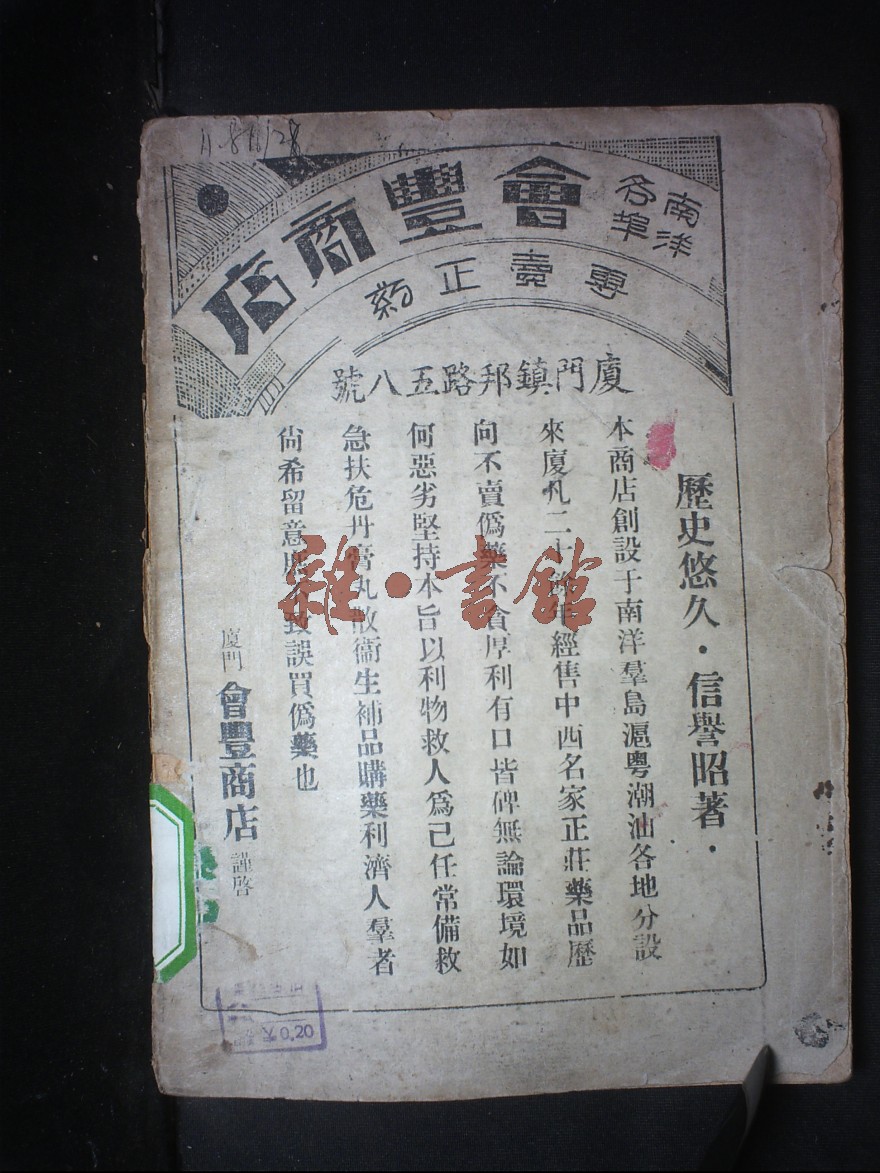 11-81128
南洋
各埠
會豐商店
專賣正药
廈門鎮邦路五八號
歷史悠久·信譽昭著·
本商店創設于南洋羣島滬粵潮汕各地分設
來廈凡二十餘年經售中西名家正莊藥品歷
向不賣僞藥不貪厚利有口皆碑無論環境如
何惡劣堅持本旨以利物救人爲己任常備救
急扶危丹膏丸散衞生補品購藥利濟人羣者
尙希留意庶不致誤買僞藥也
廈門 會豐商店 謹啓
雜·書館
0.20